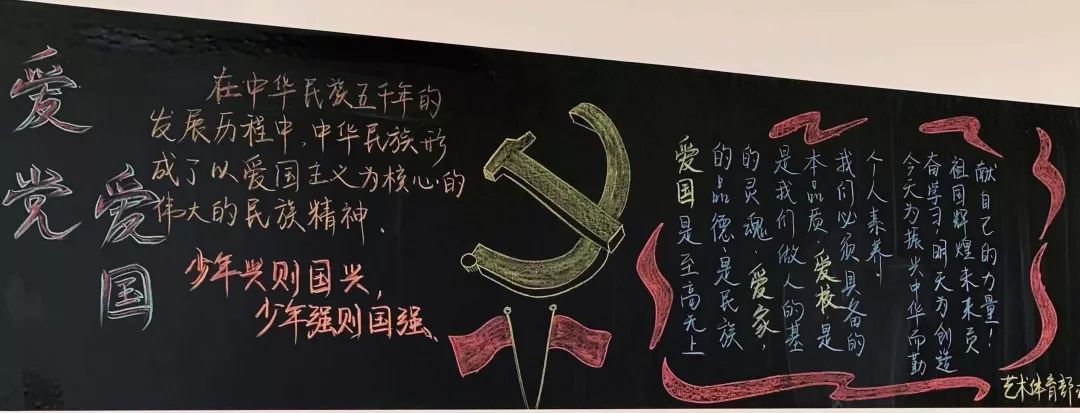 爱党
爱国
在中华民族五千年的
发展历程中,中华民族形
成了以爱国主义为核心的
伟大的民族精神.
少年兴则国兴,
少年强则国强、
爱国是至高无上
的品德,是民族
的灵魂,爱家,
是我们做人的基
本品质,爱校是
我们必须具备的
个人素养!
今天为振兴中华而勤
奋学习,明天为创造
祖国辉煌未来贡
献自己的力量!
艺术体育部